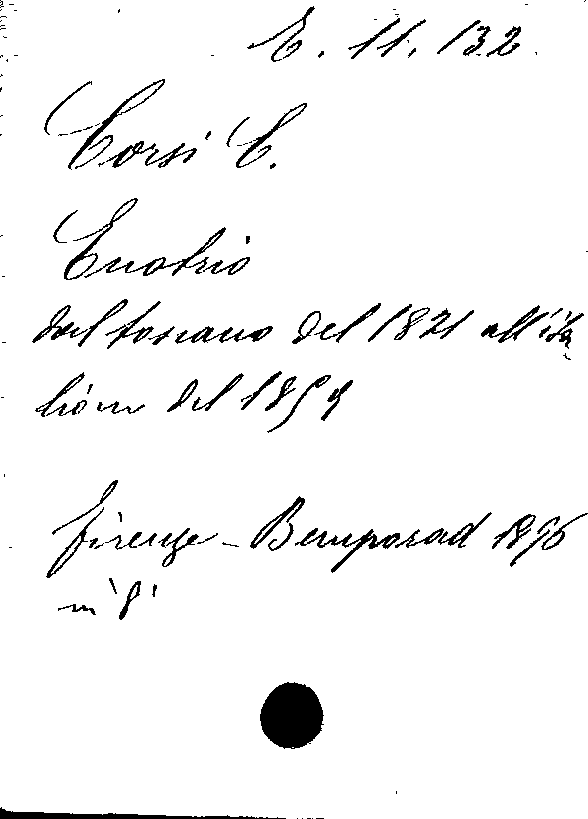 E. 11. 132
Corsi C.
Enotrio
dal toscano del 1821 all'ita
liano del 1859
Firenze - Bemporad 1896
in 8°